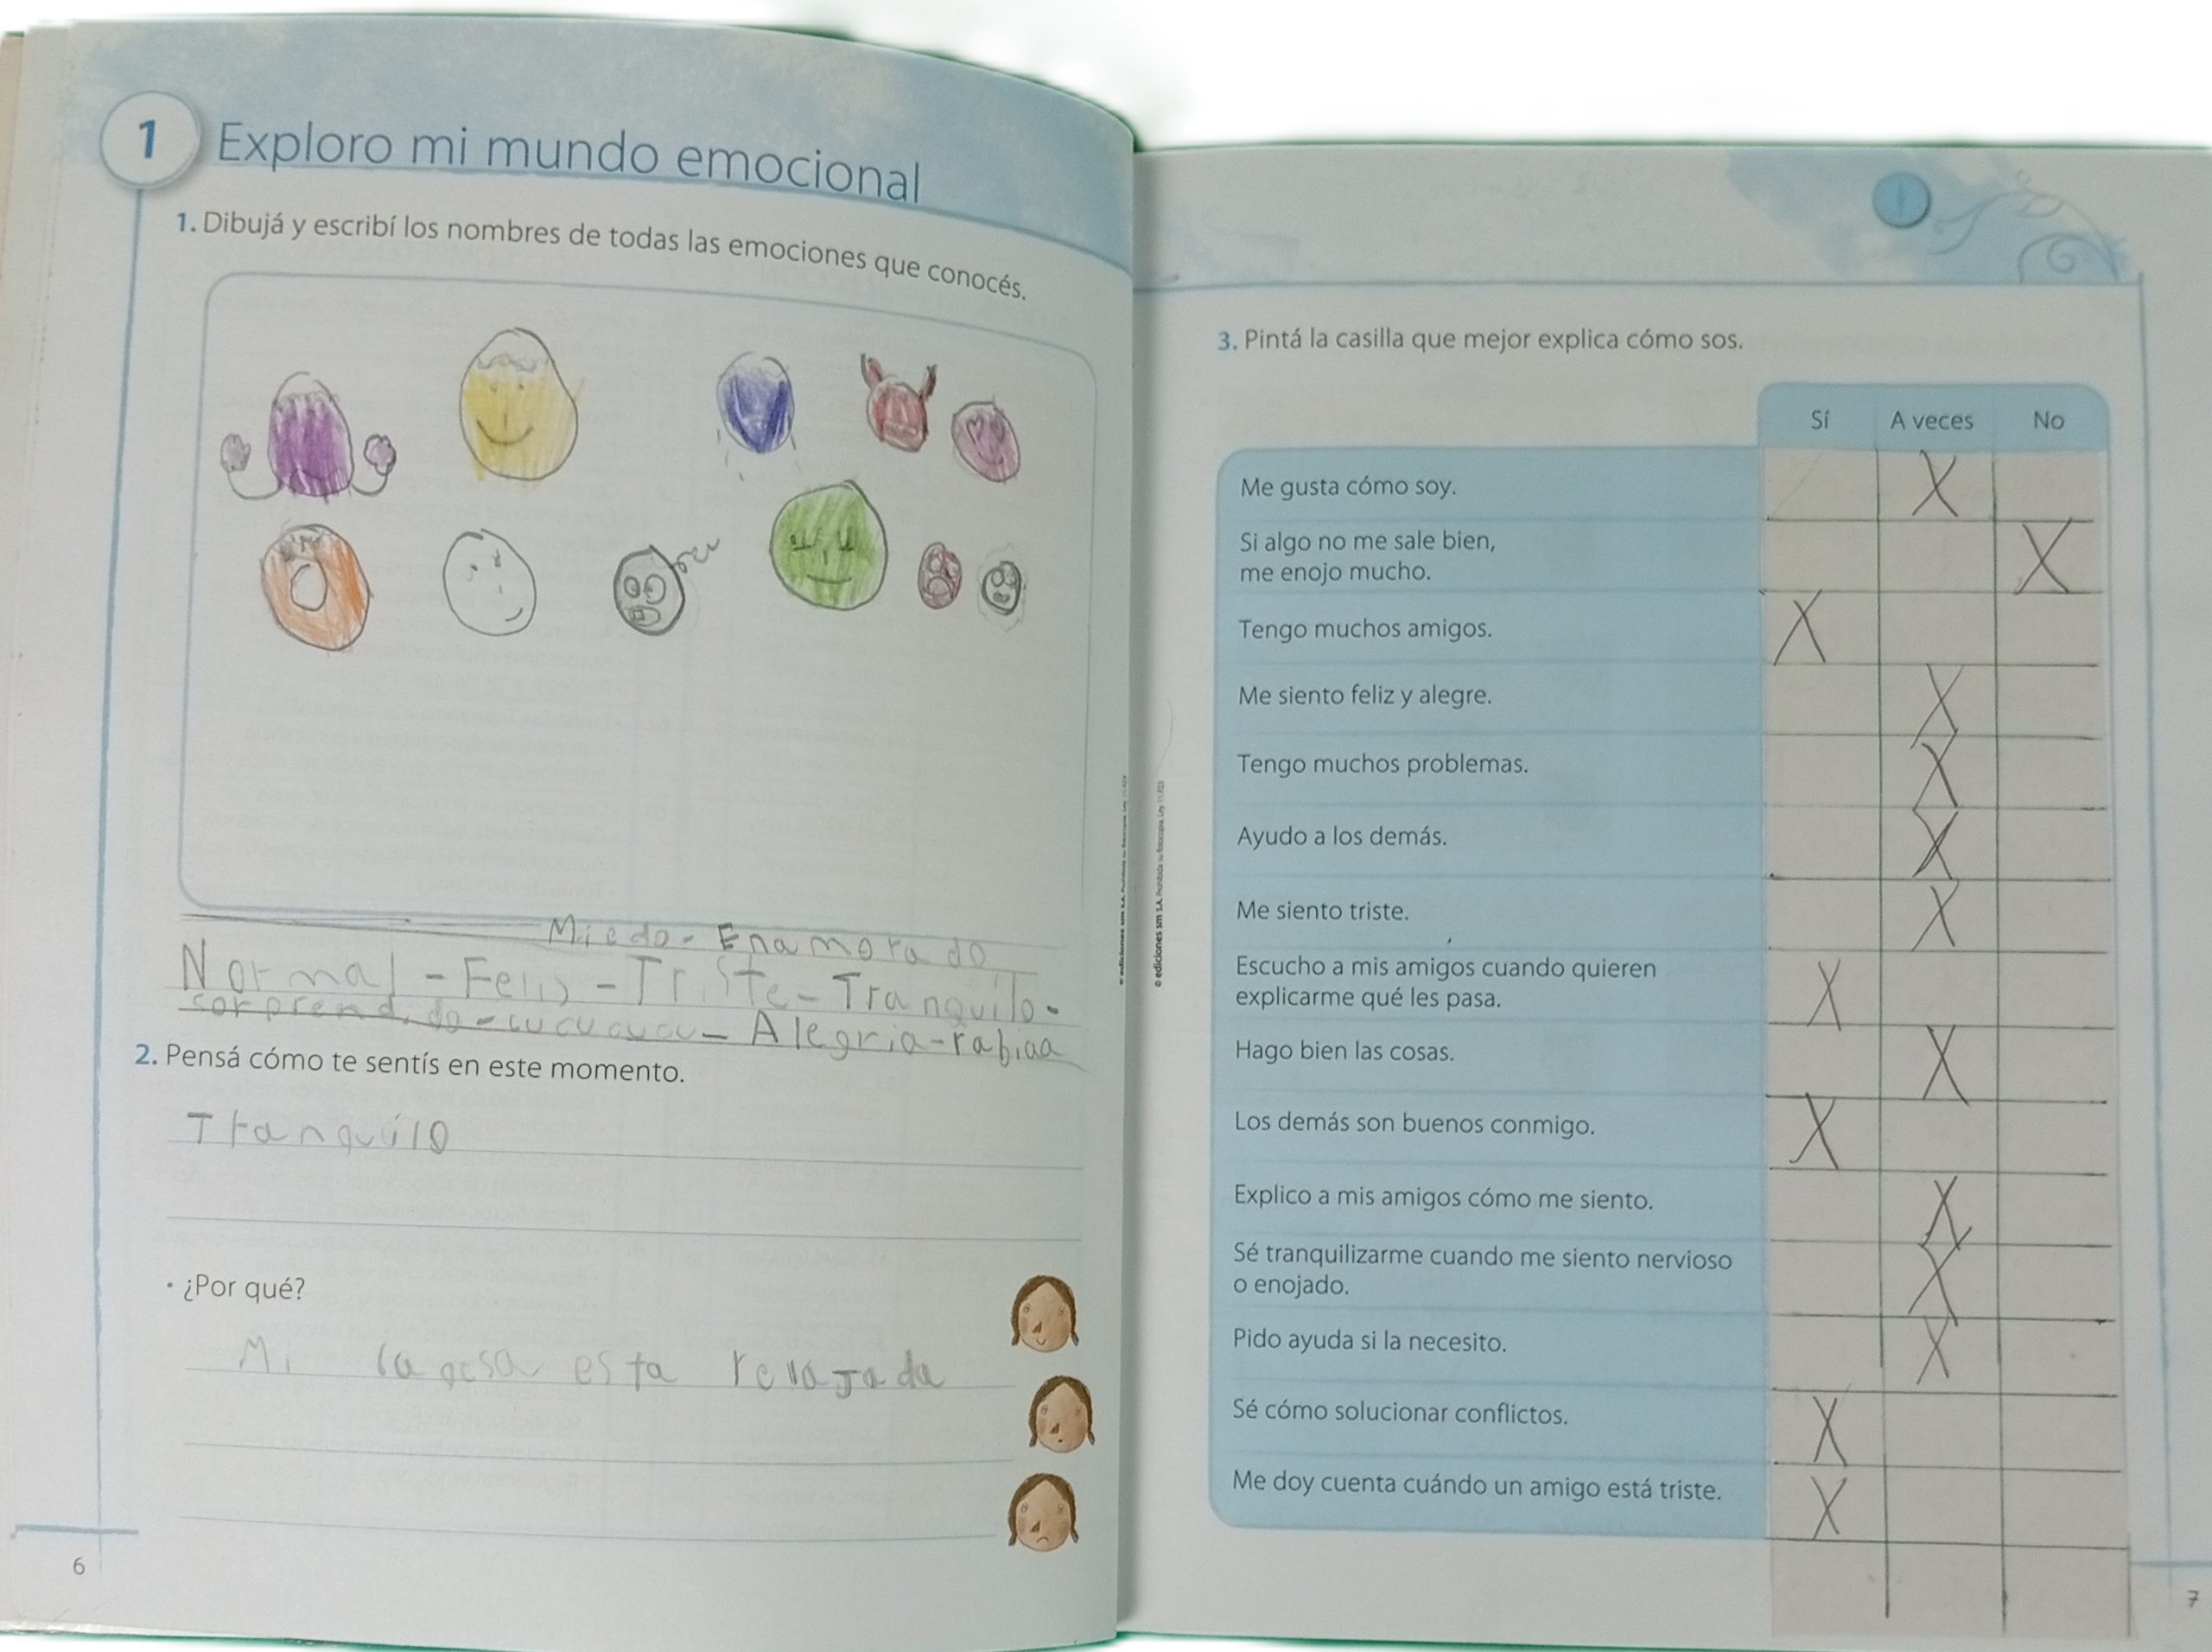 1 Exploro mi mundo emocional
1. Dibujá y escribí los nombres de todas las emociones que conocés.
Miedo - Enamorado
Normal - Felis - Triste - Tranquilo -
sorprendido - cucucucu - Alegria - rabiaa
2. Pensá cómo te sentís en este momento.
Tranquilo
• ¿Por qué?
Mi esta
6
© ediciones sm S.A. Prohibida su fotocopia. Ley 11.723
© ediciones sm S.A. Prohibida su fotocopia. Ley 11.723
3. Pintá la casilla que mejor explica cómo sos.
Sí A veces No
Me gusta cómo soy. X
Si algo no me sale bien,
me enojo mucho. X
Tengo muchos amigos. X
Me siento feliz y alegre. X
Tengo muchos problemas. X
Ayudo a los demás. X
Me siento triste. X
Escucho a mis amigos cuando quieren
explicarme qué les pasa. X
Hago bien las cosas. X
Los demás son buenos conmigo. X
Explico a mis amigos cómo me siento. X
Sé tranquilizarme cuando me siento nervioso
o enojado. X
Pido ayuda si la necesito. X
Sé cómo solucionar conflictos. X
Me doy cuenta cuándo un amigo está triste. X
7